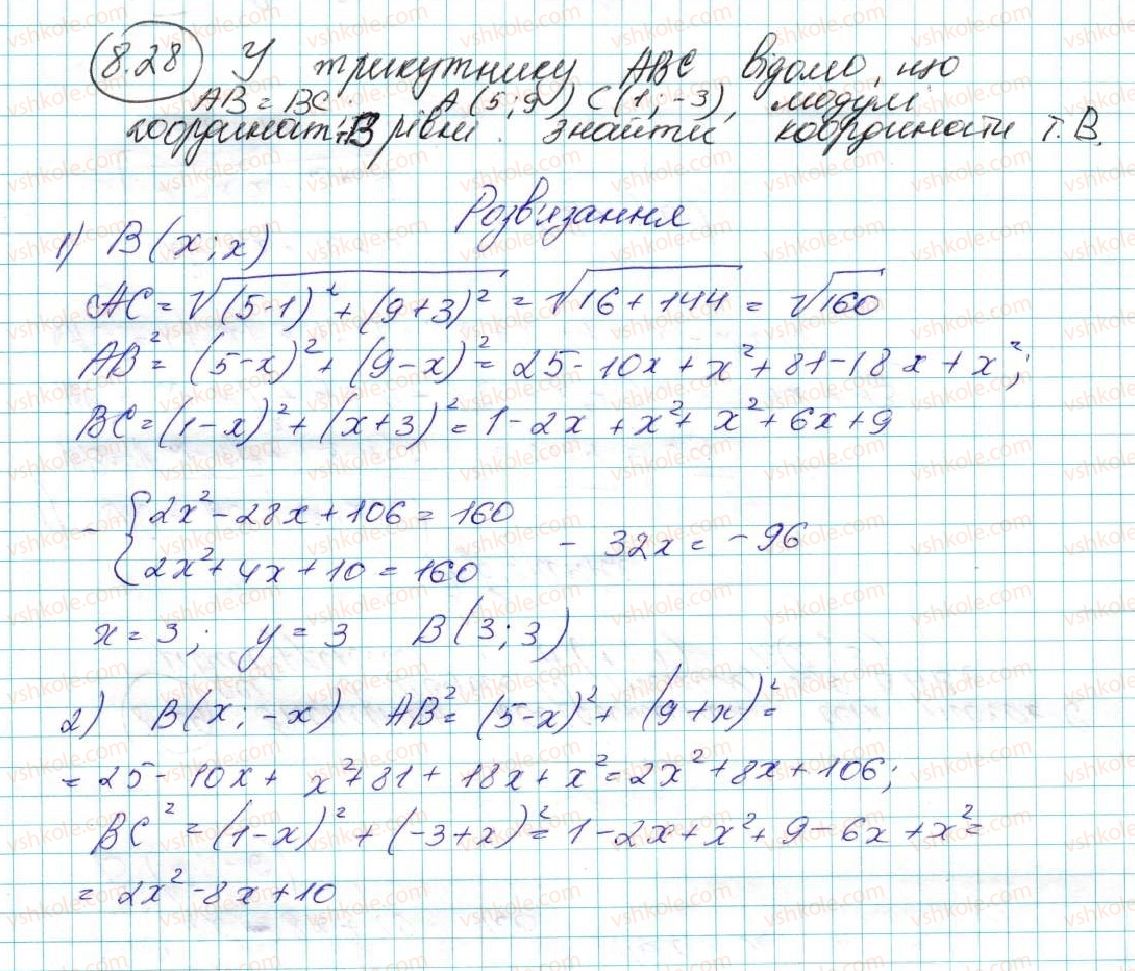 8.28 У трикутнику ABC відомо, що
AB = BC. A(5;9) C(1;-3), модулі
координат т.B рівні. знайти координати т. B.
Розв'язання
1) B(x;x)
AC = √((5-1)² + (9+3)²) = √(16+144) = √160
AB² = (5-x)² + (9-x)² = 25-10x+x²+81-18x+x²;
BC = (1-x)² + (x+3)² = 1-2x+x²+x²+6x+9
- { 2x²-28x+106 = 160
2x²+4x+10 = 160 - 32x = -96
x = 3; y = 3 B(3;3)
2) B(x;-x) AB² = (5-x)² + (9+x)² =
= 25-10x+x²+81+18x+x² = 2x²+8x+106;
BC² = (1-x)² + (-3+x)² = 1-2x+x²+9-6x+x² =
= 2x²-8x+10
vshkole.com